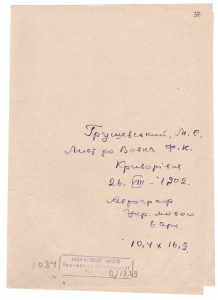 37
Грушевський, М. С.
Лист до Вовка Ф. К.
Криворівня
26. VIII - 1902.
Автограф
Укр. мовою
1 арк.
10,4 x 16,9